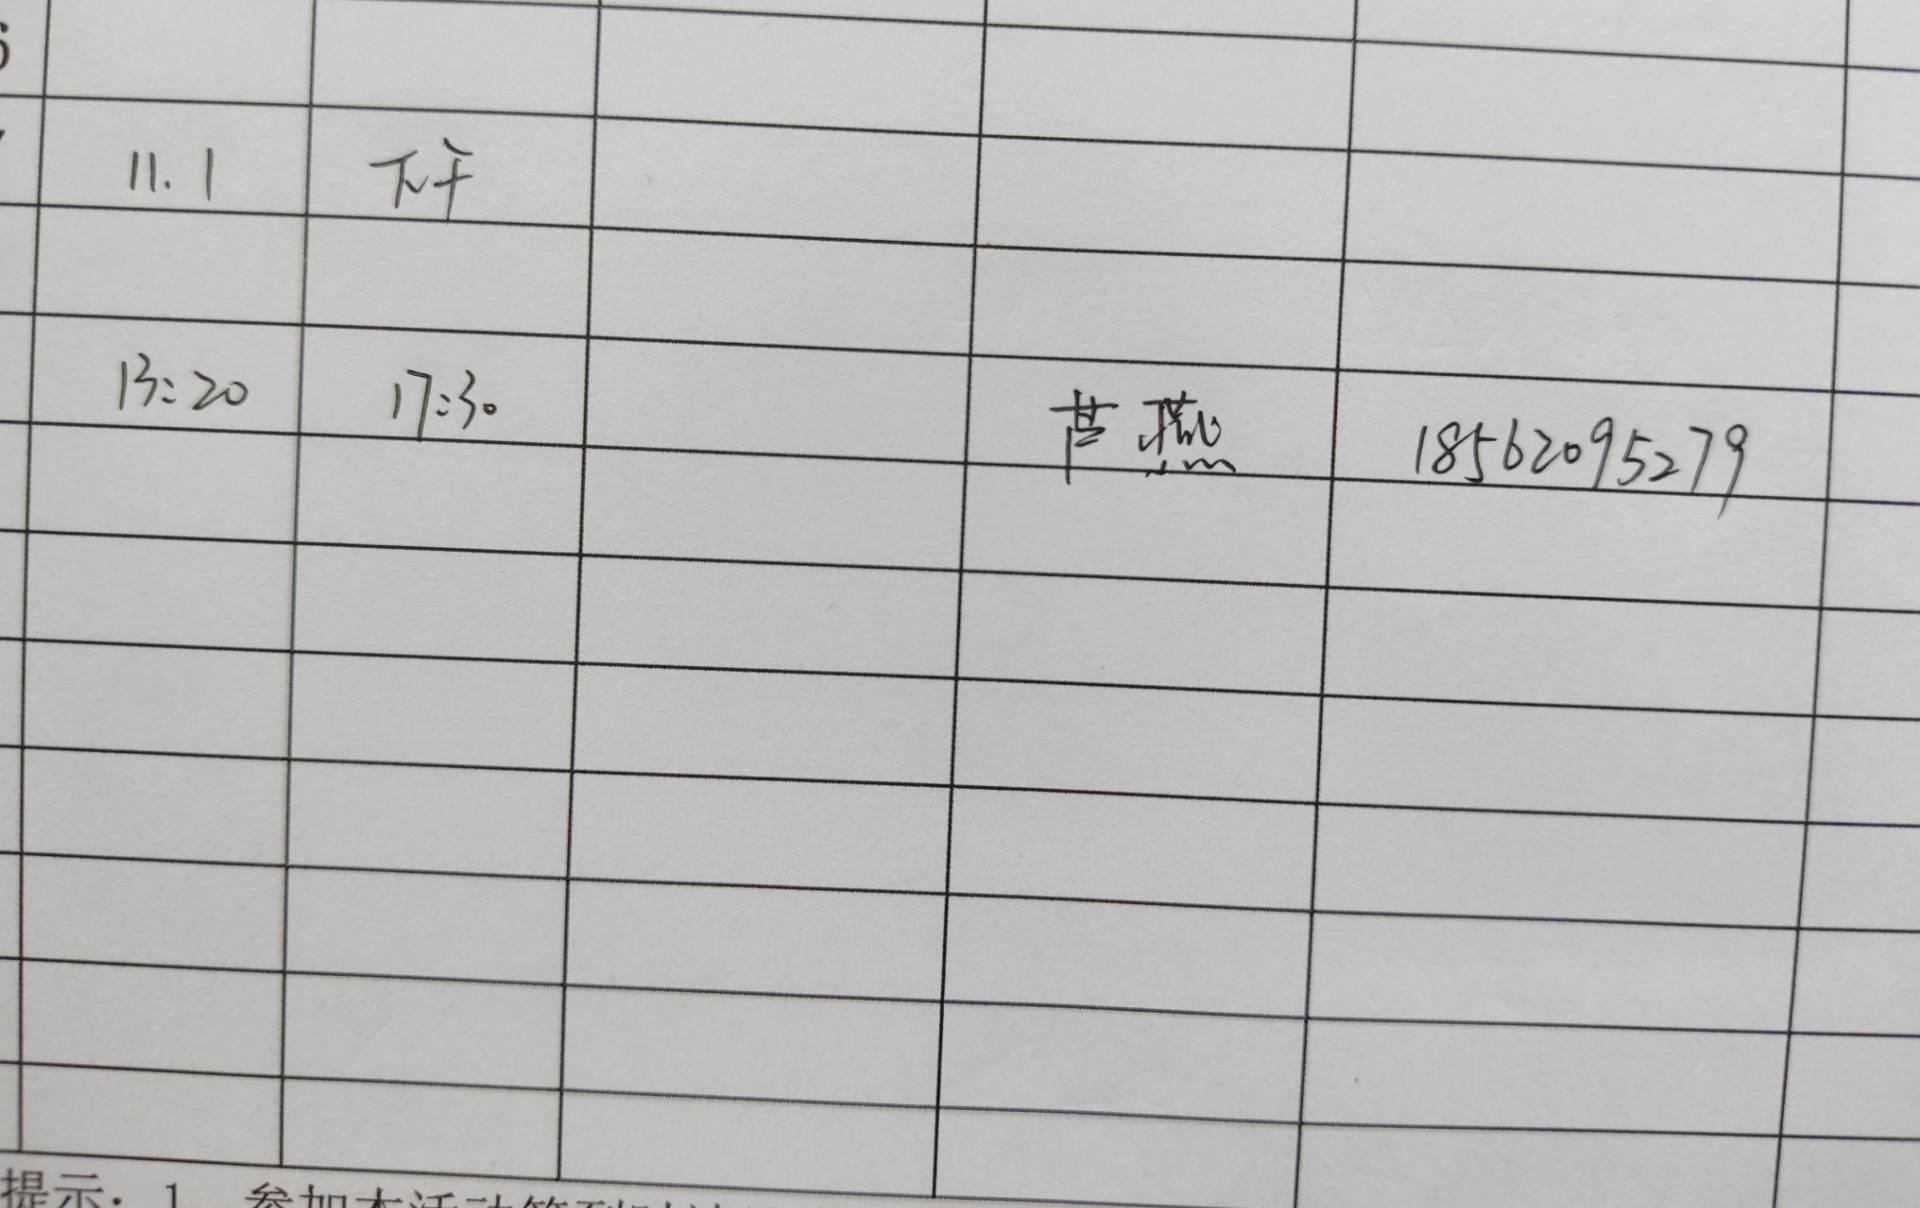 6
11.1 下午
13:20 17:30 芦燕 18562095279
提示: 1、参加本活动签到